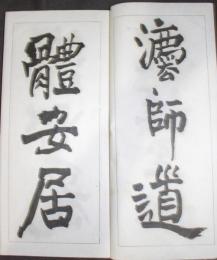 澐師道
體安居